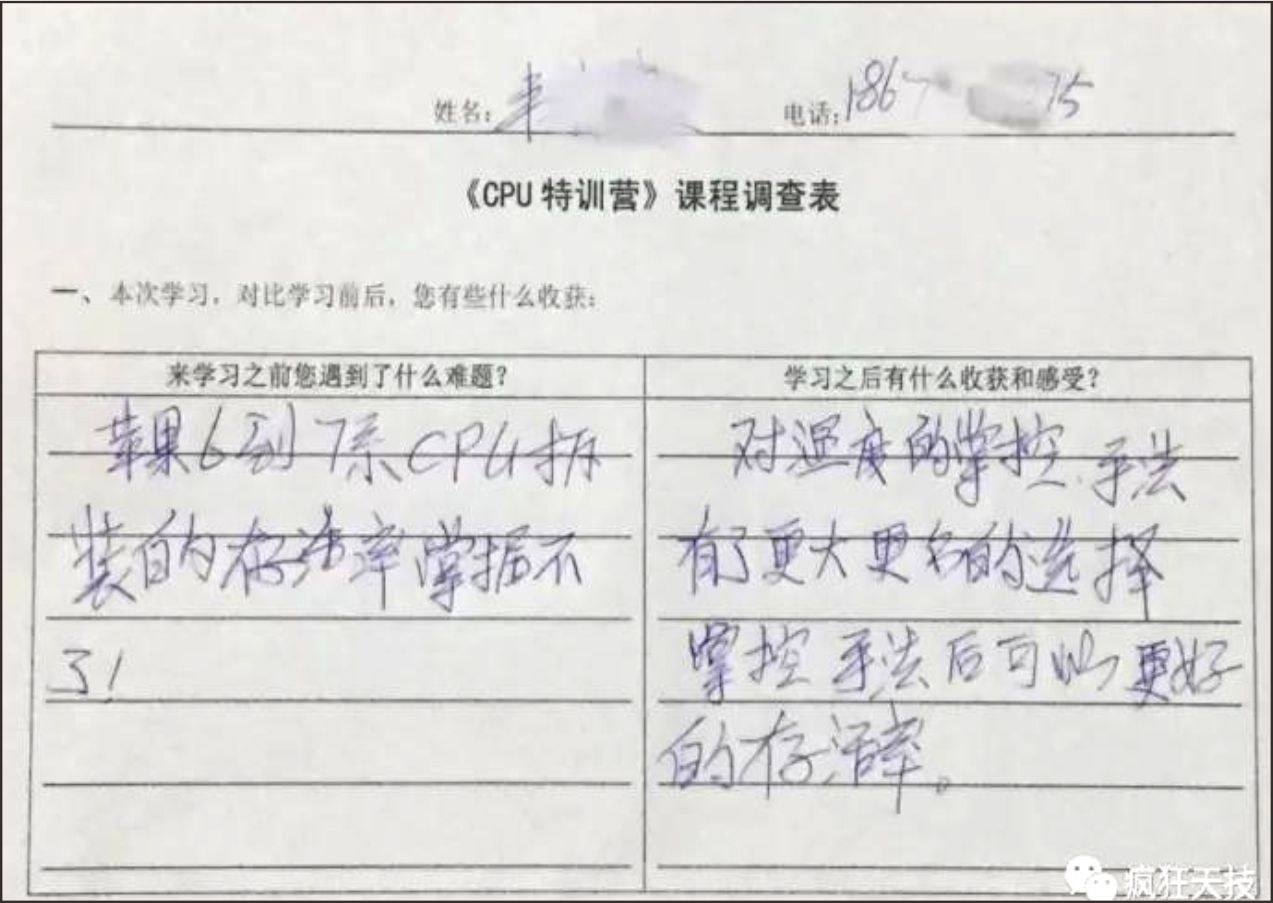 姓名: 电话: 1867 75
《CPU特训营》课程调查表
一、本次学习，对比学习前后，您有些什么收获：
来学习之前您遇到了什么难题？
苹果6到7系CPU拆
装的存活率掌握不
了!
学习之后有什么收获和感受？
对温度的掌控、手法
有了更大更多的选择
掌控手法后可以更好
的存活率。
疯狂天技